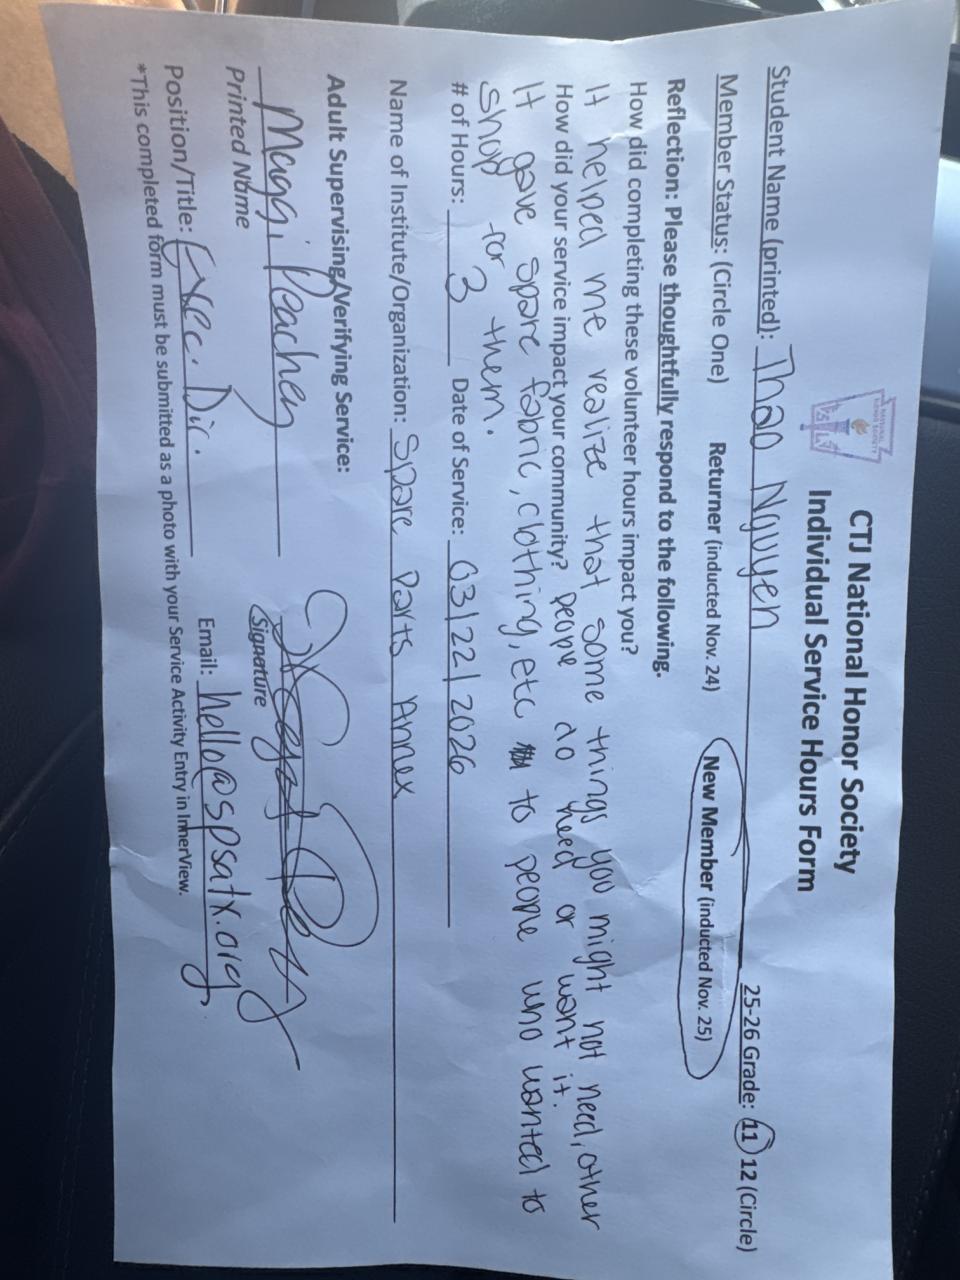 CTJ National Honor Society
Individual Service Hours Form
NATIONAL
HONOR SOCIETY
Student Name (printted): Thao Nguyen 25-26 Grade: 11 12 (Circle)
Member Status: (Circle One) Returner (inducted Nov. 24) New Member (inducted Nov. 25)
Reflection: Please thoughtfully respond to the following.
How did completing these volunteer hours impact you?
It helped me realize that some things you might not need, other
people do need or want it.
How did your service impact your community?
It gave spare fabric, clothing, etc to people who wanted to
shop for them.
# of Hours: 3 Date of Service: 03/22/2026
Name of Institute/Organization: Spare Parts Annex
Adult Supervising/Verifying Service:
Maggi Peachey
Printed Name Signature
Position/Title: Exec. Dir. Email: hello@spsatx.org
*This completed form must be submitted as a photo with your Service Activity Entry in InnerView.